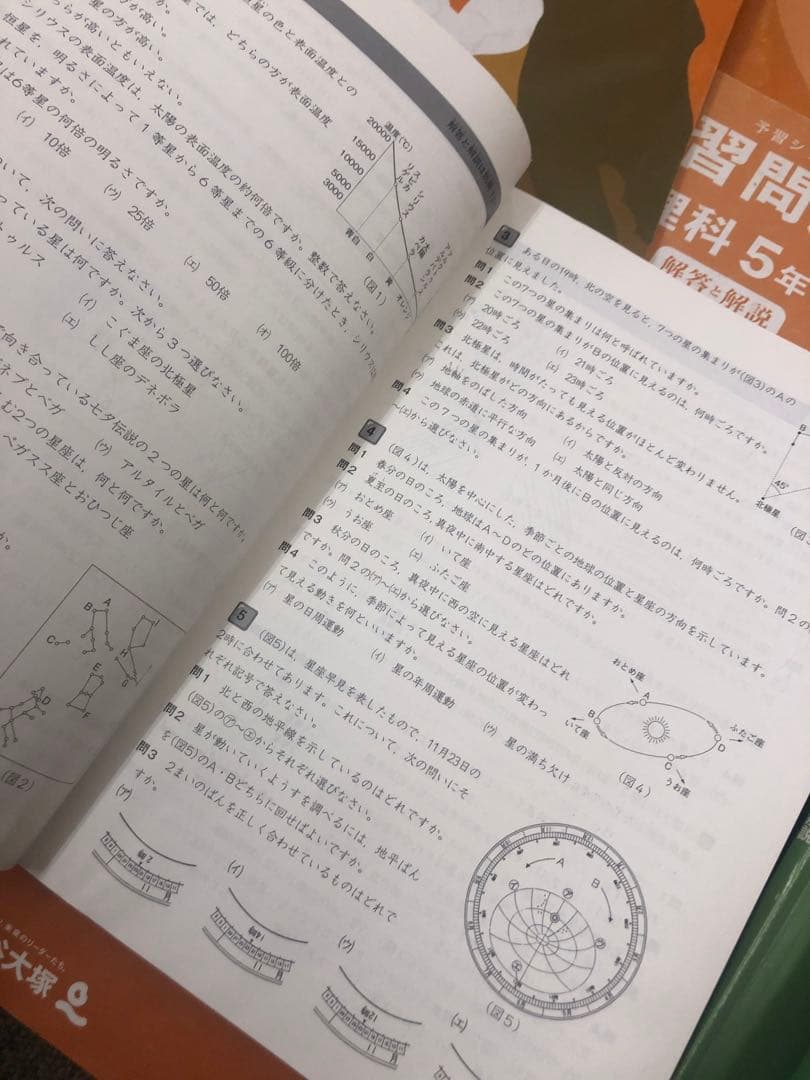 恒星の色と表面温度との
星では、どちらの方が表面温度
が高い。
星の方が高い。
ちらが高いともいえない。
シリウスの表面温度は、太陽の表面温度の約何倍ですか。整数で答えなさい。
恒星を、明るさによって1等星から6等星までの6等級に分けたとき、シリウスは
れていますか。
は6等星の何倍の明るさですか。
(イ) 10倍
(ウ) 25倍
(エ) 50倍
(オ) 100倍
ついて、次の問いに答えなさい。
っている星は何ですか。次から3つ選びなさい。
(イ) こぐま座の北極星
(エ) しし座のデネボラ
で向き合っている七夕伝説の2つの星は何と何ですか。
ネブとベガ
(ウ) アルタイルとベガ
む2つの星座は、何と何ですか。
ペガスス座とおひつじ座
温度(℃)
20000
15000
10000
5000
3000
青白
白
黄
オレンジ
(図1)
A
B
C
D
E
F
G
H
(図2)
3 ある日の19時、北の空を見ると、7つの星の集まりが(図3)のAの
位置に見えました。
問1 この7つの星の集まりは何と呼ばれていますか。
問2 この7つの星の集まりがBの位置に見えるのは、何時ごろですか。
(ア) 20時ごろ
(イ) 21時ごろ
(ウ) 22時ごろ
(エ) 23時ごろ
問3 北極星は、時間がたっても見える位置がほとんど変わりません。
これは、北極星がどの方向にあるからですか。
(ア) 地軸をのばした方向
(イ) 太陽と反対の方向
(ウ) 地球の赤道に平行な方向
(エ) 太陽と同じ方向
問4 この7つの星の集まりが、1か月後にBの位置に見えるのは、何時ごろですか。問2の
~(エ)から選びなさい。
B
45°
北極星
4 (図4)は、太陽を中心にした、季節ごとの地球の位置と星座の方向を示しています。
問1 春分の日のころ、地球はA~Dのどの位置にありますか。
問2 夏至の日のころ、真夜中に南中する星座はどれですか。
(ア) おとめ座
(イ) いて座
(ウ) うお座
(エ) ふたご座
問3 秋分の日のころ、真夜中に西の空に見える星座はどれ
ですか。問2の(ア)~(エ)から選びなさい。
問4 このように、季節によって見える星座の位置が変わっ
て見える動きを何といいますか。
(ア) 星の日周運動
(イ) 星の年周運動
(ウ) 星の満ち欠け
おとめ座
A
B
いて座
C
うお座
D
ふたご座
(図4)
5 (図5)は、星座早見を表したもので、11月23日の
2時に合わせてあります。これについて、次の問いにそ
れぞれ記号で答えなさい。
問1 北と西の地平線を示しているのはどれですか。
(図5)の㋐~㋓からそれぞれ選びなさい。
問2 星が動いていくようすを調べるには、地平ばん
を(図5)のA・Bどちらに回せばよいですか。
問3 2まいのばんを正しく合わせているものはどれで
すか。
(ア)
(イ)
(ウ)
(エ)
A
B
(図5)
予習シ
習問
理科 5年
解答と解説
大塚